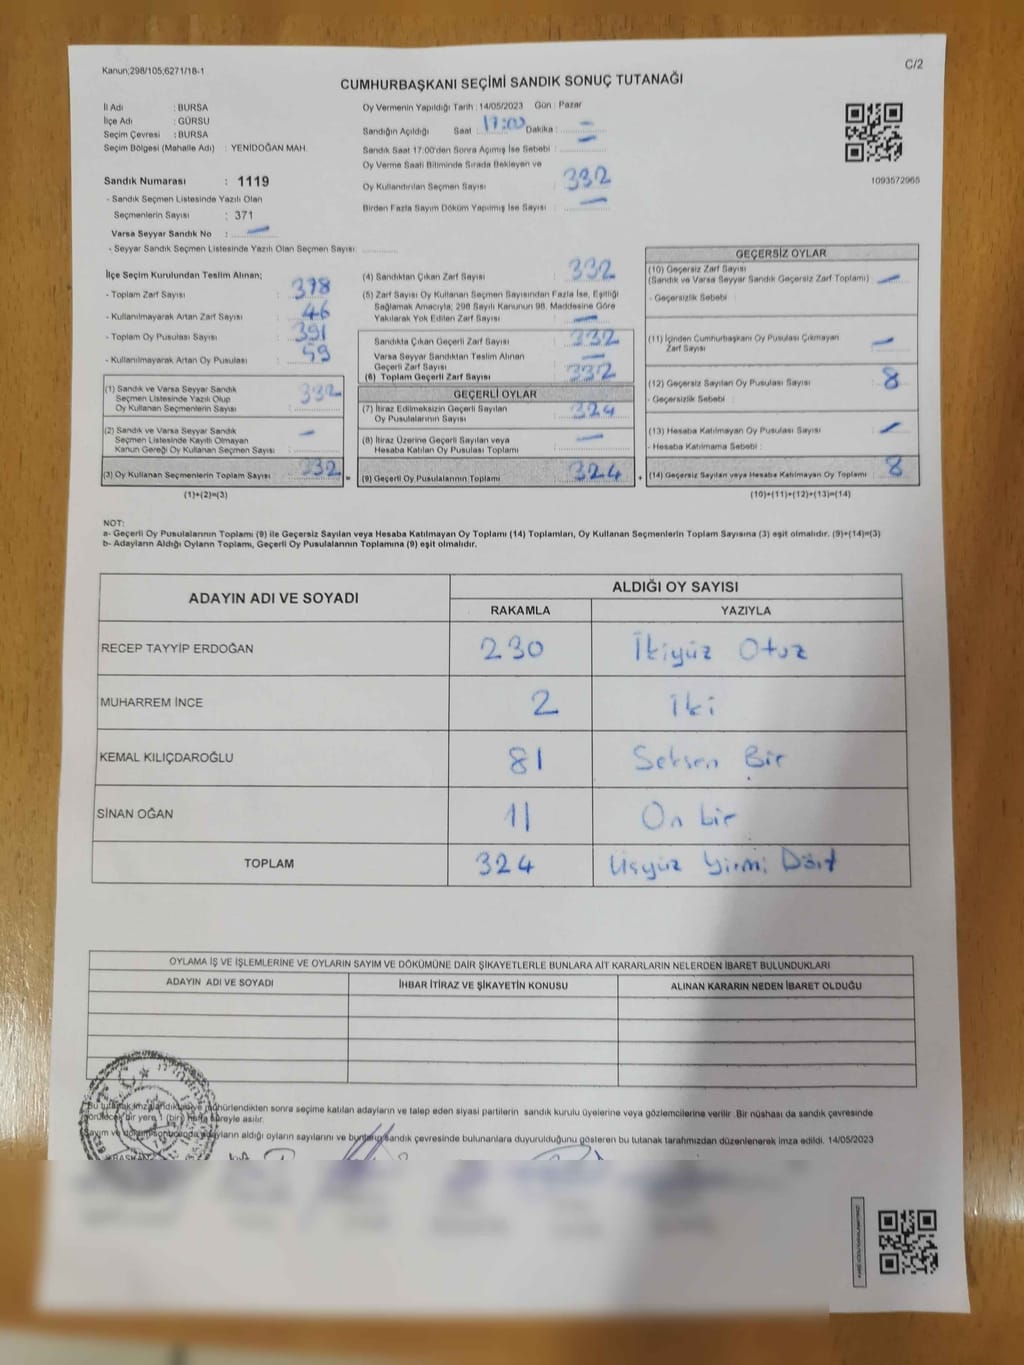 Kanun;298/105;6271/18-1
C/2
CUMHURBAŞKANI SEÇİMİ SANDIK SONUÇ TUTANAĞI
İl Adı : BURSA
İlçe Adı : GÜRSU
Seçim Çevresi : BURSA
Seçim Bölgesi (Mahalle Adı) : YENİDOĞAN MAH.
Sandık Numarası : 1119
- Sandık Seçmen Listesinde Yazılı Olan
Seçmenlerin Sayısı : 371
Varsa Seyyar Sandık No : —
- Seyyar Sandık Seçmen Listesinde Yazılı Olan Seçmen Sayısı
Oy Vermenin Yapıldığı Tarih : 14/05/2023 Gün : Pazar
Sandığın Açıldığı Saat : 17:00 Dakika : —
Sandık Saat 17:00'den Sonra Açılmış İse Sebebi : —
Oy Verme Saati Bitiminde Sırada Bekleyen ve
Oy Kullandırılan Seçmen Sayısı 332
Birden Fazla Sayım Döküm Yapılmış İse Sayısı —
1093572965
İlçe Seçim Kurulundan Teslim Alınan;
- Toplam Zarf Sayısı 378
- Kullanılmayarak Artan Zarf Sayısı : 46
- Toplam Oy Pusulası Sayısı 391
- Kullanılmayarak Artan Oy Pusulası : 59
(1) Sandık ve Varsa Seyyar Sandık
Seçmen Listesinde Yazılı Olup
Oy Kullanan Seçmenlerin Sayısı 332
(2) Sandık ve Varsa Seyyar Sandık
Seçmen Listesinde Kayıtlı Olmayan
Kanun Gereği Oy Kullanan Seçmen Sayısı —
(3) Oy Kullanan Seçmenlerin Toplam Sayısı 332
(1)+(2)=(3)
(4) Sandıktan Çıkan Zarf Sayısı 332
(5) Zarf Sayısı Oy Kullanan Seçmen Sayısından Fazla İse, Eşitliği
Sağlamak Amacıyla, 298 Sayılı Kanunun 98. Maddesine Göre
Yakılarak Yok Edilen Zarf Sayısı —
Sandıkta Çıkan Geçerli Zarf Sayısı 332
Varsa Seyyar Sandıktan Teslim Alınan
Geçerli Zarf Sayısı —
(6) Toplam Geçerli Zarf Sayısı 332
GEÇERLİ OYLAR
(7) İtiraz Edilmeksizin Geçerli Sayılan
Oy Pusulalarının Sayısı 324
(8) İtiraz Üzerine Geçerli Sayılan veya
Hesaba Katılan Oy Pusulası Toplamı —
= (9) Geçerli Oy Pusulalarının Toplamı 324 +
GEÇERSİZ OYLAR
(10) Geçersiz Zarf Sayısı
(Sandık ve Varsa Seyyar Sandık Geçersiz Zarf Toplamı) —
- Geçersizlik Sebebi :
(11) İçinden Cumhurbaşkanı Oy Pusulası Çıkmayan
Zarf Sayısı —
(12) Geçersiz Sayılan Oy Pusulası Sayısı 8
- Geçersizlik Sebebi :
(13) Hesaba Katılmayan Oy Pusulası Sayısı —
- Hesaba Katılmama Sebebi :
(14) Geçersiz Sayılan veya Hesaba Katılmayan Oy Toplamı 8
(10)+(11)+(12)+(13)=(14)
NOT:
a- Geçerli Oy Pusulalarının Toplamı (9) ile Geçersiz Sayılan veya Hesaba Katılmayan Oy Toplamı (14) Toplamları, Oy Kullanan Seçmenlerin Toplam Sayısına (3) eşit olmalıdır. (9)+(14)=(3)
b- Adayların Aldığı Oyların Toplamı, Geçerli Oy Pusulalarının Toplamına (9) eşit olmalıdır.
ADAYIN ADI VE SOYADI
ALDIĞI OY SAYISI
RAKAMLA YAZIYLA
RECEP TAYYİP ERDOĞAN 230 İkiyüz Otuz
MUHARREM İNCE 2 İki
KEMAL KILIÇDAROĞLU 81 Seksen Bir
SİNAN OĞAN 11 On bir
TOPLAM 324 Üçyüz Yirmi Dört
OYLAMA İŞ VE İŞLEMLERİNE VE OYLARIN SAYIM VE DÖKÜMÜNE DAİR ŞİKAYETLERLE BUNLARA AİT KARARLARIN NELERDEN İBARET BULUNDUKLARI
ADAYIN ADI VE SOYADI İHBAR İTİRAZ VE ŞİKAYETİN KONUSU ALINAN KARARIN NEDEN İBARET OLDUĞU
Bu tutanak imzalandıktan ve mühürlendikten sonra seçime katılan adayların ve talep eden siyasi partilerin sandık kurulu üyelerine veya gözlemcilerine verilir. Bir nüshası da sandık çevresinde
görülecek bir yere 1 (bir) hafta süreyle asılır.
Sayım ve döküm sonucunda adayların aldığı oyların sayılarını ve bunların sandık çevresinde bulunanlara duyurulduğunu gösteren bu tutanak tarafımızdan düzenlenerek imza edildi. 14/05/2023
BAŞKAN